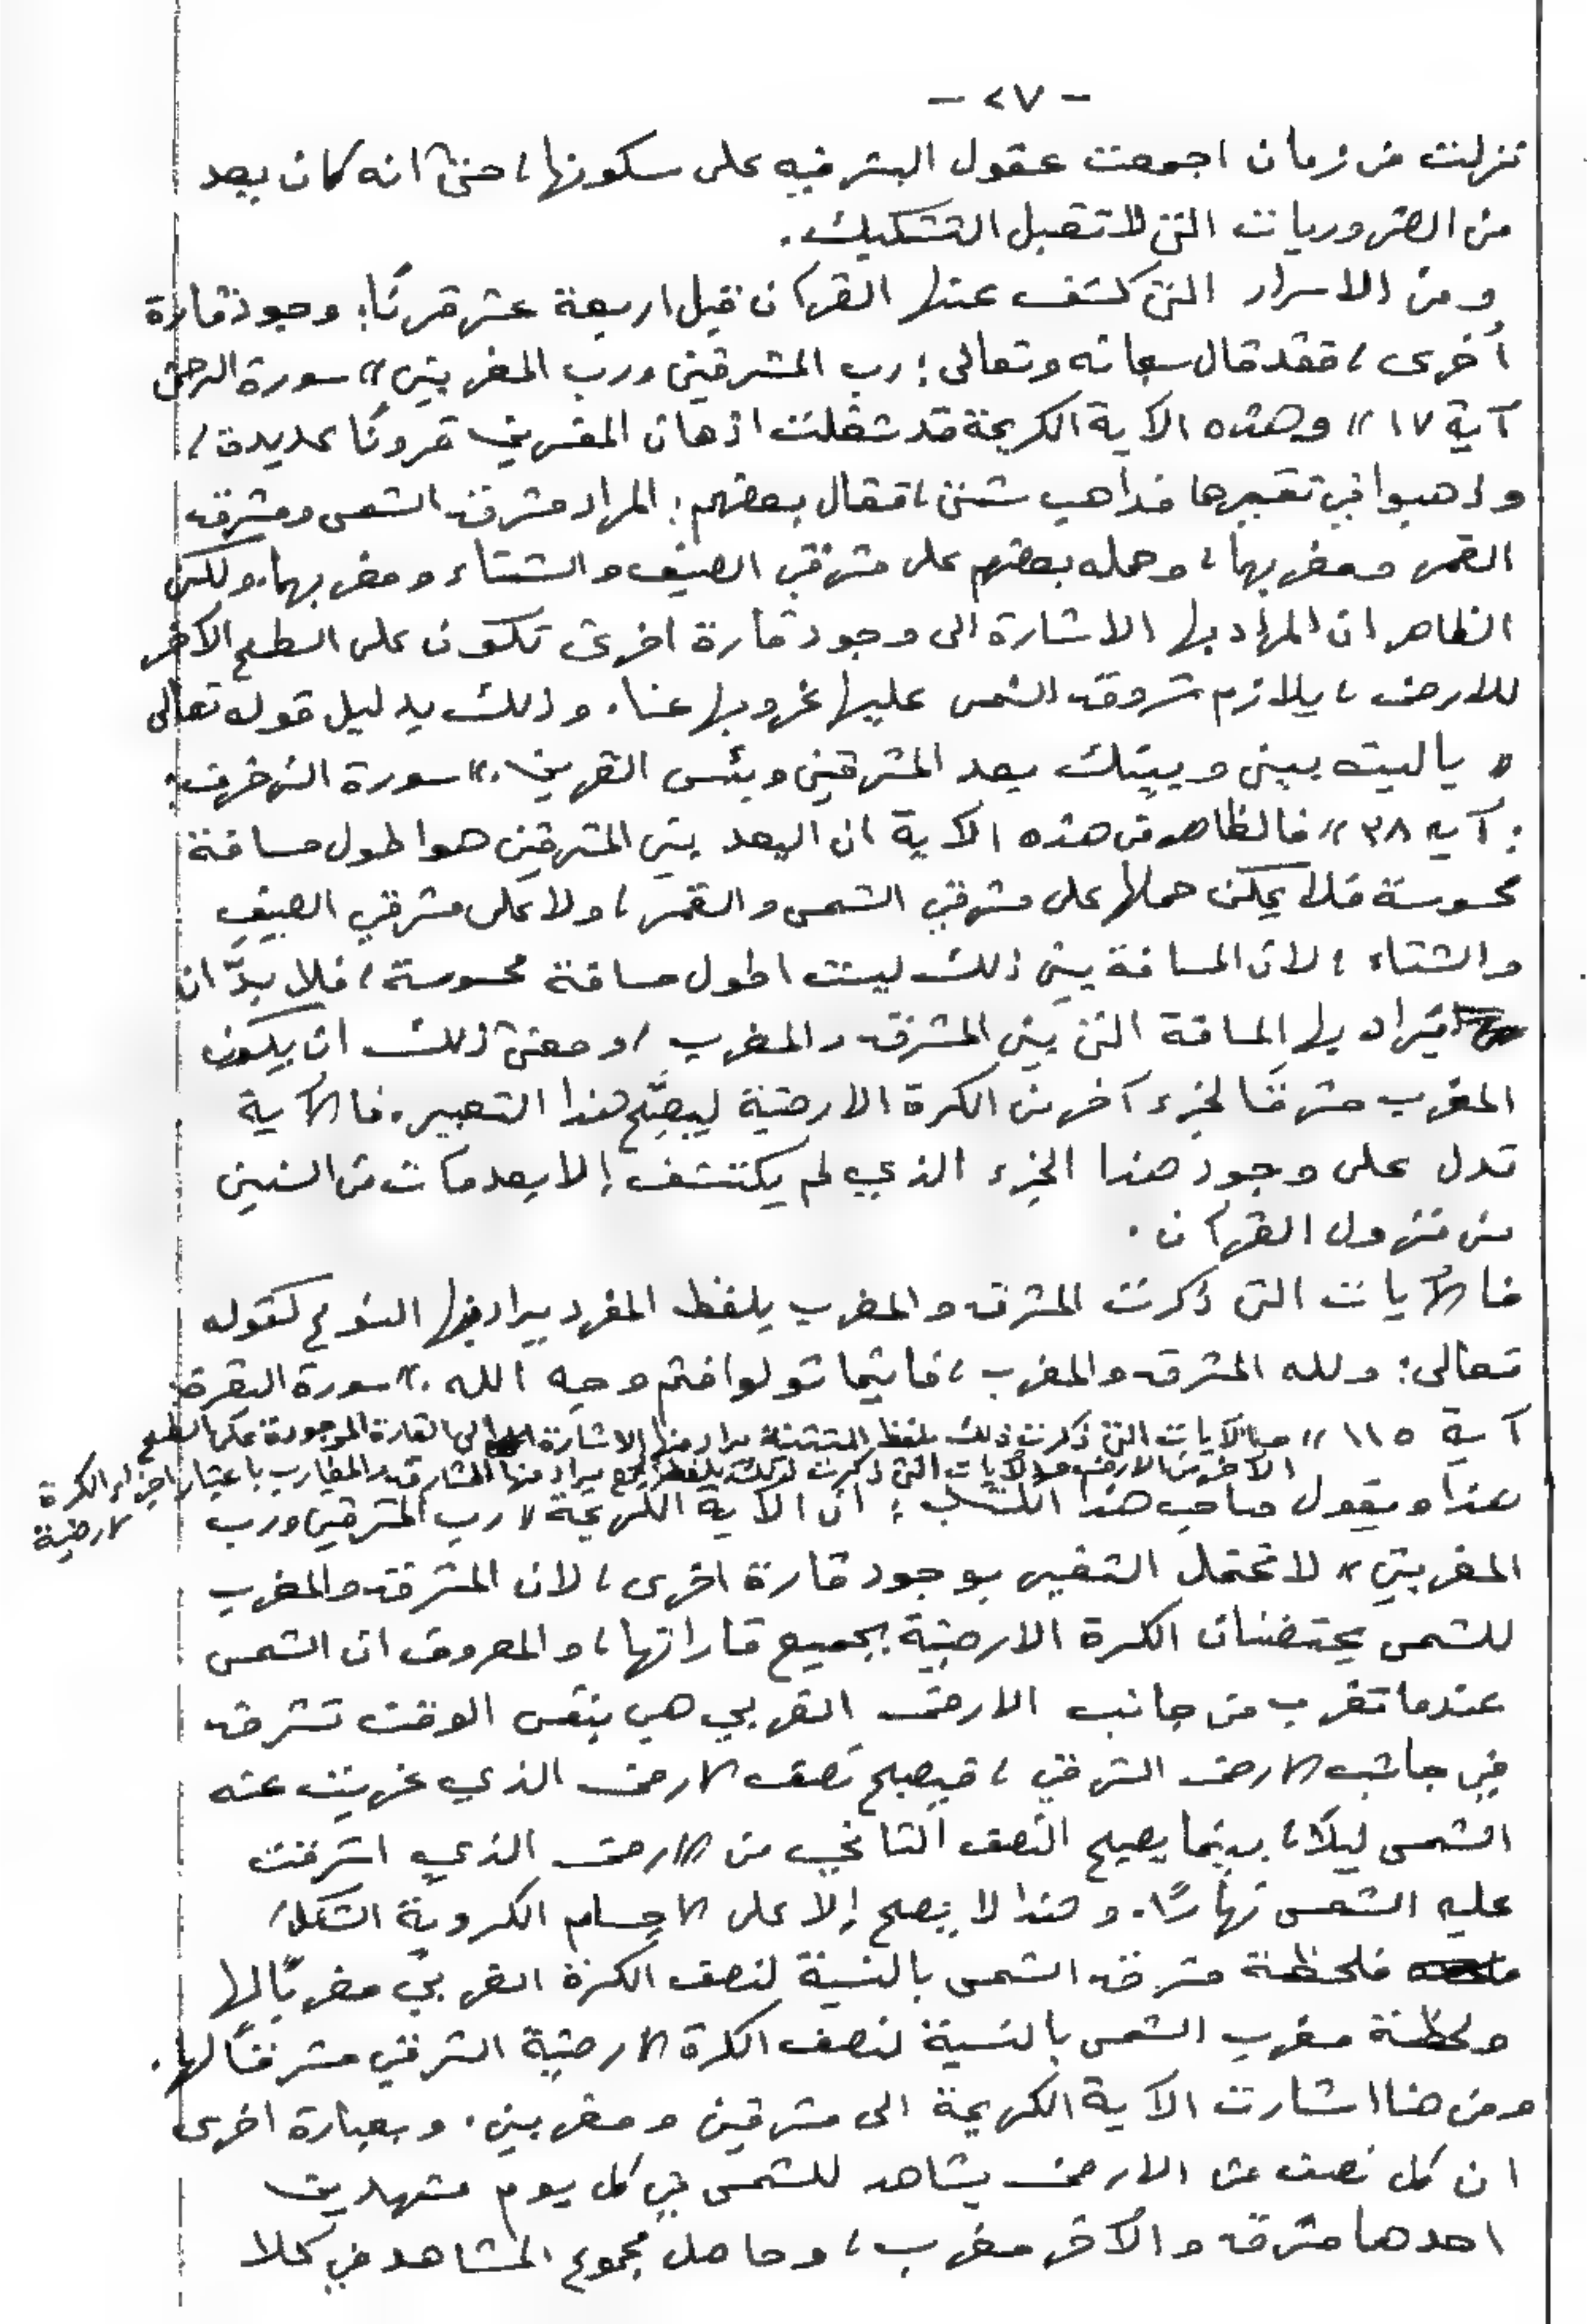 - ٢٧ -
تنزلت في زمان اجمعت عقول البشر فيه على سكونها، حتى انه كان يعد
من الضروريات التي لا تقبل التشكيك.
ومن الاسرار التي كشف عنها القرآن قبل اربعة عشر قرنًا: وجود قارة
أخرى، فقد قال سبحانه وتعالى: رب المشرقين ورب المغربين» سورة الرحمن
آية ١٧» وهذه الآية الكريمة قد شغلت اذهان المفسرين قرونًا عديدة،
وذهبوا في تفسيرها مذاهب شتى، فقال بعضهم: المراد مشرق الشمس ومشرق
القمر ومغربهما، وحمله بعضهم على مشرقي الصيف والشتاء ومغربهما. ولكن
الظاهر ان المراد بها الاشارة الى وجود قارة اخرى تكون على السطح الآخر
للارض، يلازم شروق الشمس عليها غروبها عنا. وذلك بدليل قوله تعالى
« يا ليت بيني وبينك بعد المشرقين وبئس القرين.» سورة الزخرف:
: آية ٣٨» فالظاهر من هذه الآية ان البعد بين المشرقين هو اطول مسافة
محسوسة فلا يمكن حملها على مشرقي الشمس والقمر، ولا على مشرقي الصيف
والشتاء، لان المسافة بين ذلك ليست اطول مسافة محسوسة، فلا بدّ ان
يراد بها المسافة التي بين المشرق والمغرب، ومعنى ذلك ان يكون
المغرب مشرقًا لجزء آخر من الكرة الارضية ليصحّ هذا التعبير. فالآية
تدل على وجود هذا الجزء الذي لم يكتشف إلا بعد مئات من السنين
من نزول القرآن.
فالآيات التي ذكرت المشرق والمغرب بلفظ المفرد يراد منها النوع كقوله
تعالى: ولله المشرق والمغرب، فأينما تولوا فثم وجه الله.» سورة البقرة:
آية ١١٥» والآيات التي ذكرت ذلك بلفظ التثنية يراد منها الاشارة الى القارة الموجودة على السطح
الآخر من الارض والآيات التي ذكرت ذلك بلفظ الجمع يراد منها المشارق والمغارب باعتبار اجزاء الكرة
الارضية
هذا ويقول صاحب هذا الكتاب: ان الآية الكريمة « رب المشرقين ورب
المغربين» لا تحتمل التفسير بوجود قارة اخرى، لان المشرق والمغرب
للشمس يحتضنان الكرة الارضية بجميع قاراتها، والمعروف ان الشمس
عندما تغرب من جانب الارض الغربي هي بنفس الوقت تشرق
في جانب الارض الشرقي، فيصبح نصف الارض الذي غربت عنه
الشمس ليلا، بينما يصبح النصف الثاني من الارض الذي اشرقت
عليه الشمس نهارًا. وهذا لا يصح إلا على الاجسام الكروية الشكل،
فلحظة مشرق الشمس بالنسبة لنصف الكرة الغربي مغربًا لها
ولحظة مغرب الشمس بالنسبة لنصف الكرة الارضية الشرقي مشرقًا لها.
ومن هنا اشارت الآية الكريمة الى مشرقين ومغربين. وبعبارة اخرى
ان كل نصف من الارض يشاهد للشمس في كل يوم مشهدين
احدهما مشرق والآخر مغرب، وحاصل مجموع المشاهد في كلا